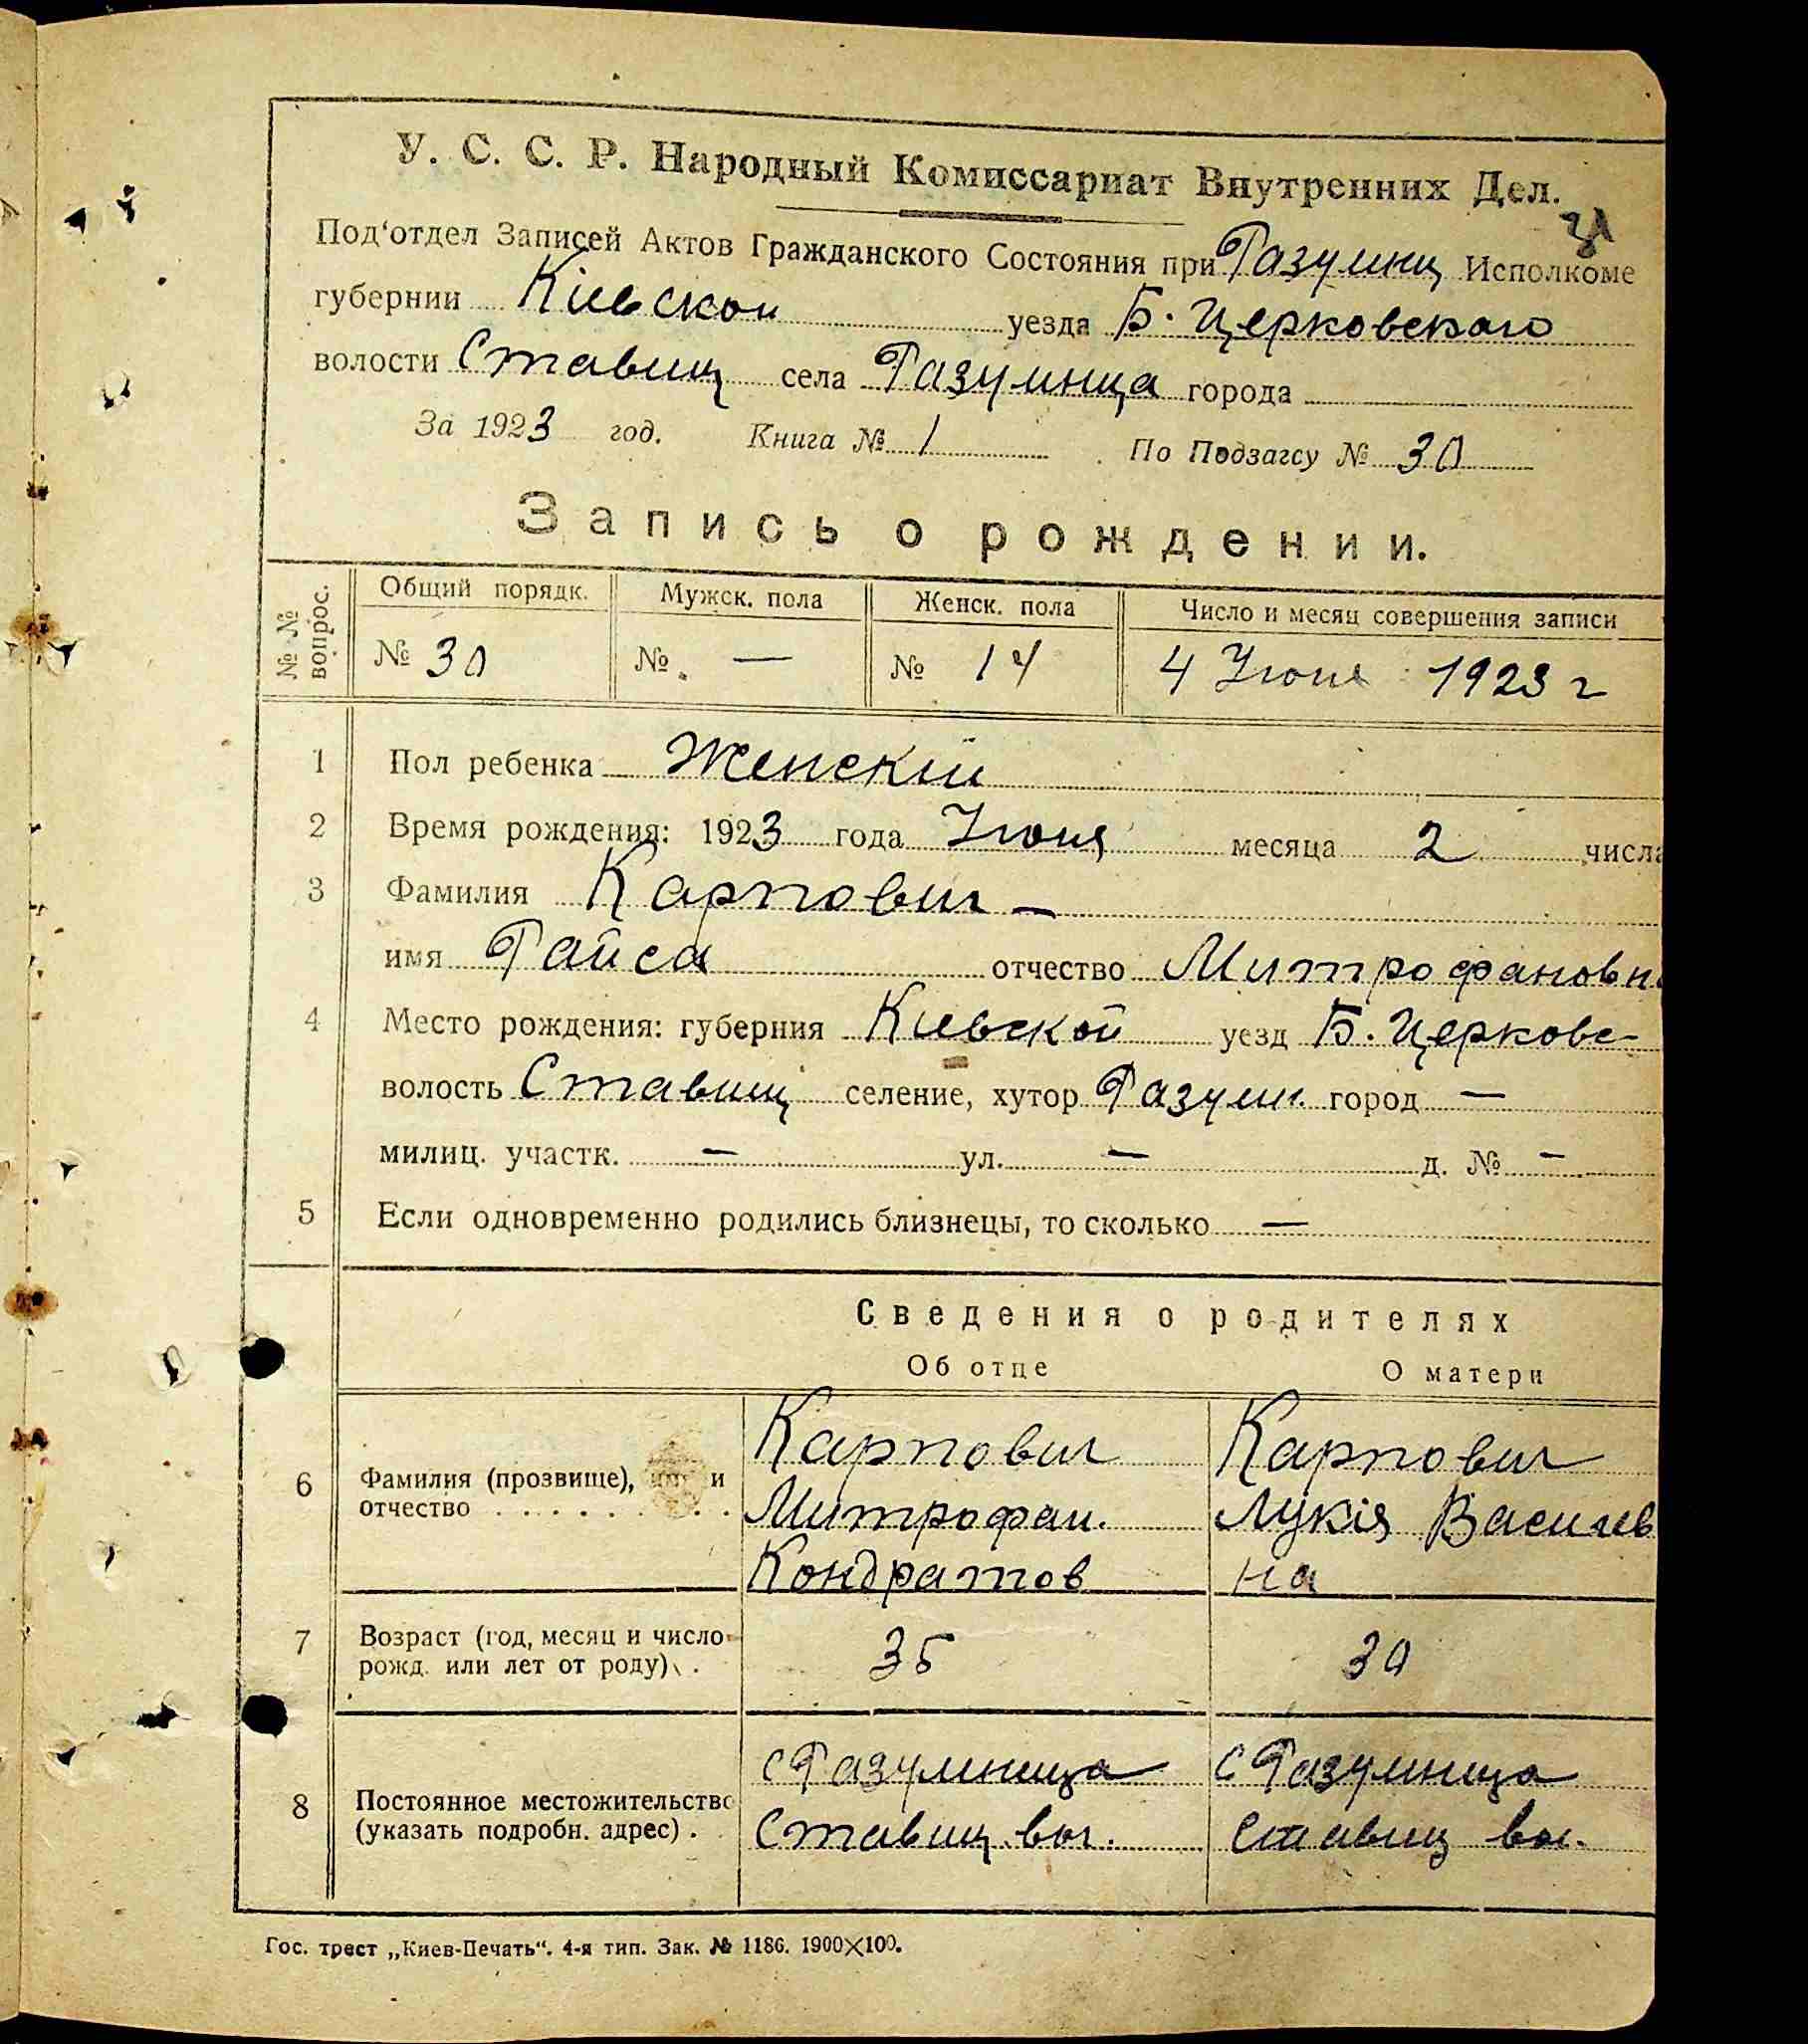 У. С. С. Р. Народный Комиссариат Внутренних Дел.
31
Под‘отдел Записей Актов Гражданского Состояния при Разумниц Исполкоме
губернии Кіевской уезда Б. Церковскаго
волости Ставищ села Разумница города
За 1923 год. Книга № 1 По Подзагсу № 30
Запись о рождении.
№ № вопрос. Общий порядк. Мужск. пола Женск. пола Число и месяц совершения записи
№ 30 № — № 14 4 Июня 1923 г
1 Пол ребенка Женскій
2 Время рождения: 1923 года Июня месяца 2 числа
3 Фамилия Карпович —
имя Раиса отчество Митрофановна
4 Место рождения: губерния Киевской уезд Б. Церковс-
волость Ставищ селение, хутор Разумн. город —
милиц. участк. — ул. — д. № —
5 Если одновременно родились близнецы, то сколько —
Сведения о родителях
Об отце О матери
Карпович Карпович
6 Фамилия (прозвище), имя и
отчество . . . . . . . . Митрофан. Лукія Василев
Кондратов на
7 Возраст (год, месяц и число
рожд. или лет от роду) . 35 30
с Разумница с Разумница
8 Постоянное местожительство
(указать подробн. адрес) . Ставищ. вол. Ставищ вол.
Гос. трест „Киев-Печать“. 4-я тип. Зак. № 1186. 1900×100.